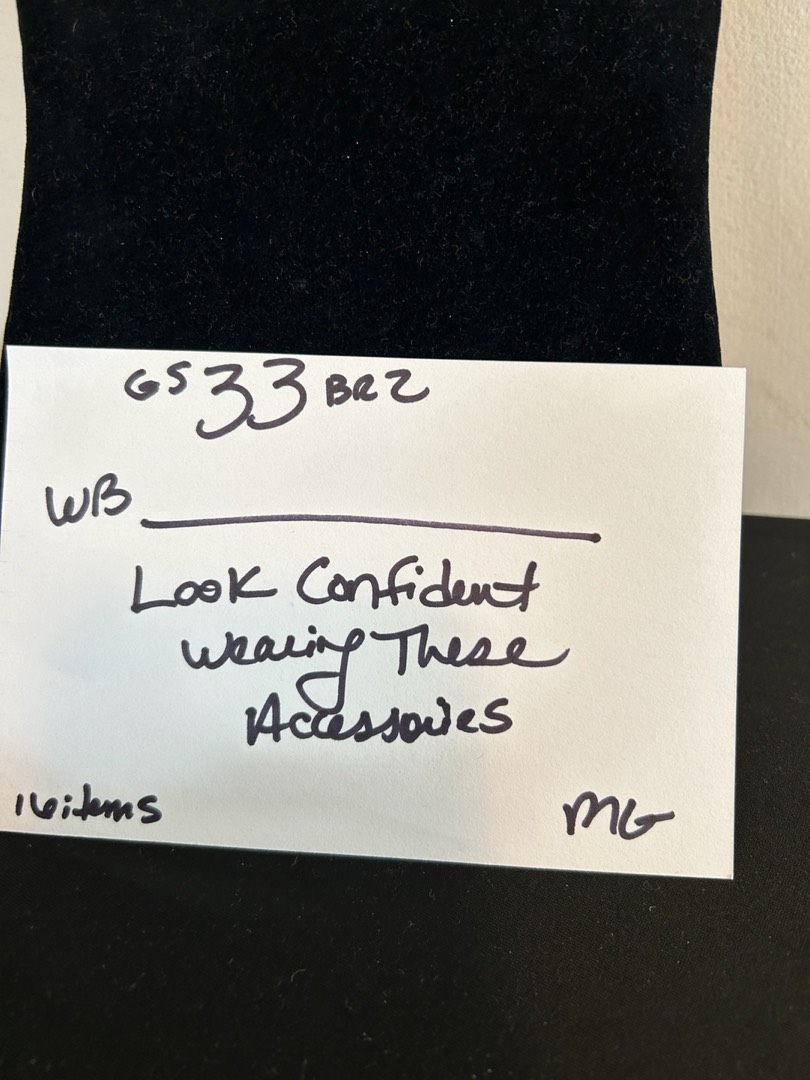 GS 33 BR2
WB
Look Confident
Wearing These
Accessories
16 items
MG